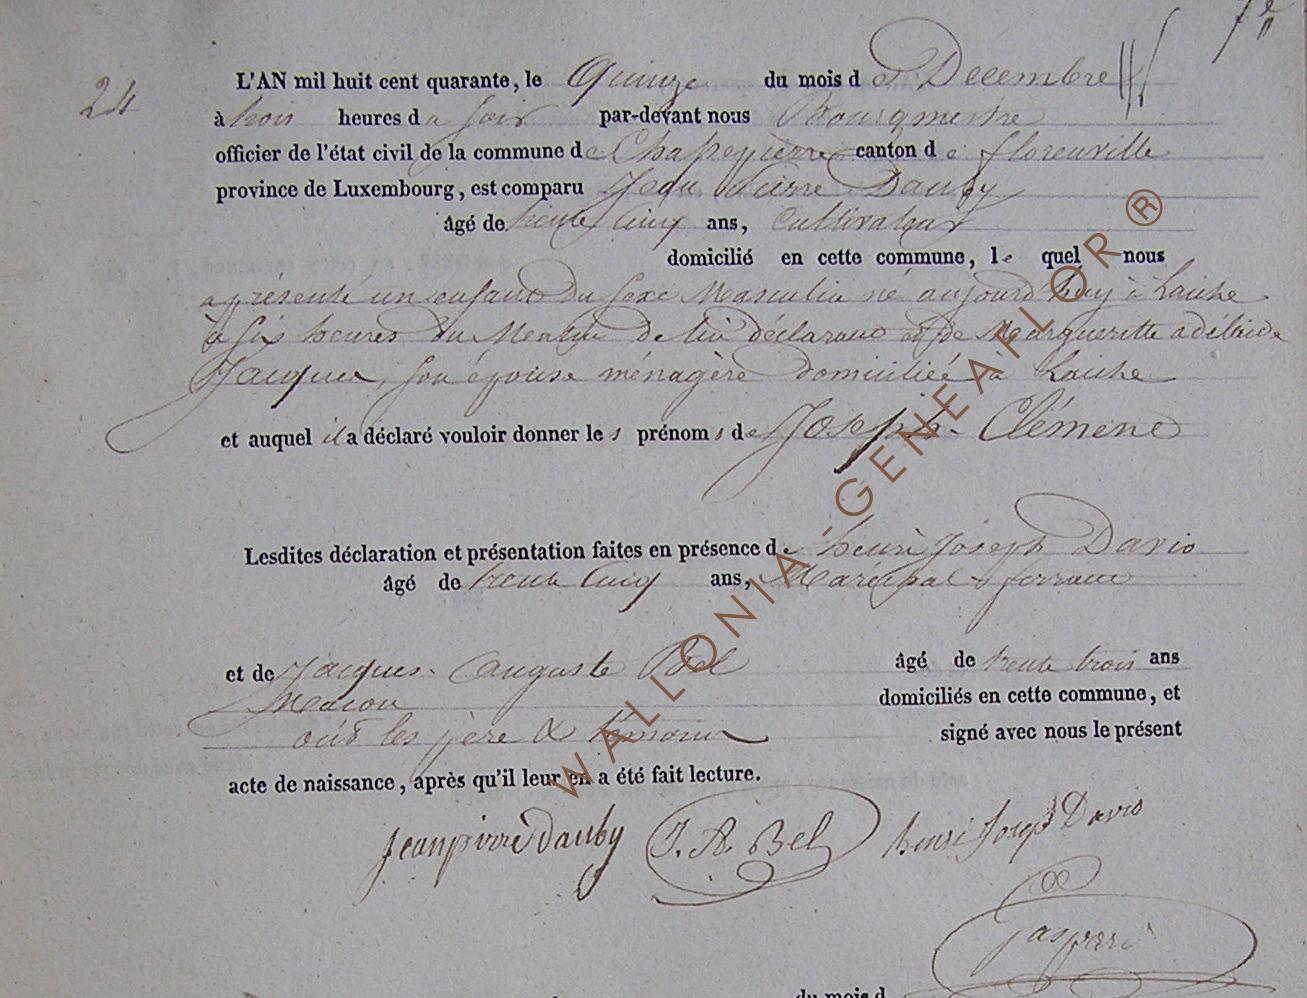 24
L'AN mil huit cent quarante, le Quinze du mois de Décembre
à trois heures du soir par-devant nous Bourgmestre
officier de l'état civil de la commune de Chassepierre canton de florenville
province de Luxembourg, est comparu Jean Pierre Dauby
âgé de trente cinq ans, Cultivateur
domicilié en cette commune, le quel nous
a presenté un enfant du sexe Masculin né aujourd'huy à Laiche
à six heures du Matin de lui déclarant et de Margueritte adélaide
Jacques, son épouse ménagère domiciliée à Laiche
et auquel il a déclaré vouloir donner les prénoms de Joseph-Clément
Lesdites déclaration et présentation faites en présence de henri Joseph Davio
âgé de trente cinq ans, Maréchal ferrant
et de Jacques-auguste Bel âgé de trente trois ans
Macon domiciliés en cette commune, et
ont les père & temoins signé avec nous le présent
acte de naissance, après qu'il leur en a été fait lecture.
Jeanpierre Dauby J. A. Bel henri Joseph Davio
du mois d
WALLONIA-GENEAFLOR ®